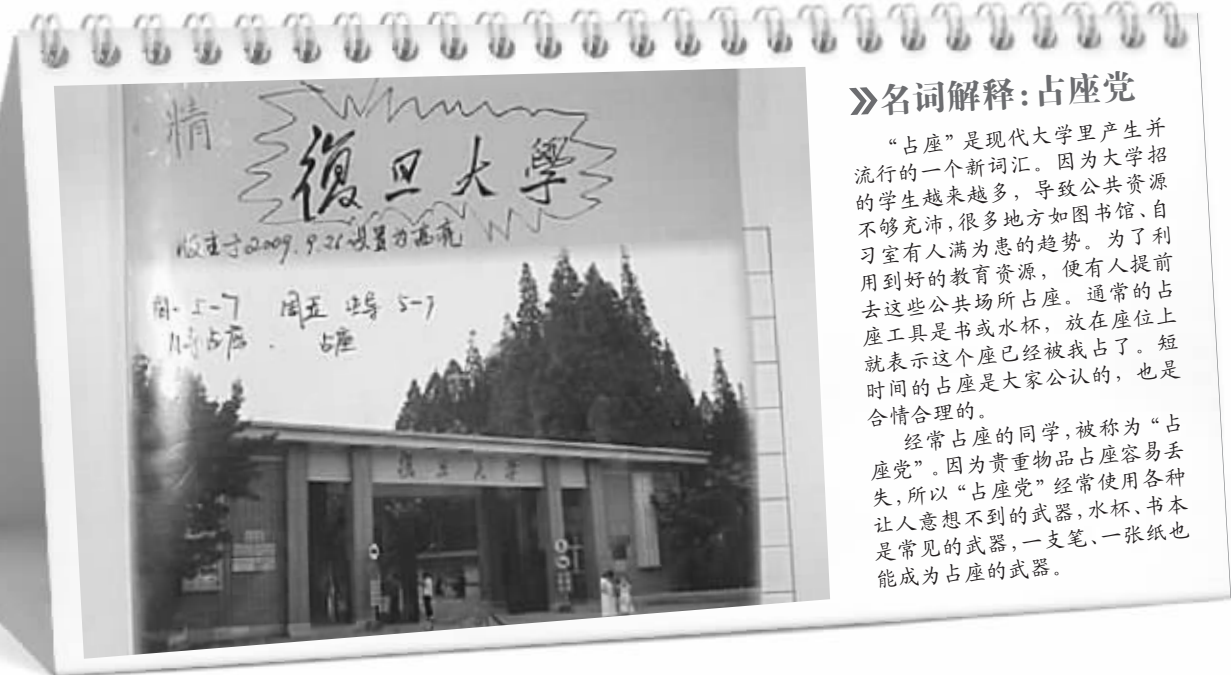 精
復旦大學
版主于2009.9.21设置为高亮
周一 5-7 周五 5-7
占座 . 占座
復旦大學
»名词解释:占座党
“占座”是现代大学里产生并
流行的一个新词汇。因为大学招
的学生越来越多，导致公共资源
不够充沛,很多地方如图书馆、自
习室有人满为患的趋势。为了利
用到好的教育资源，便有人提前
去这些公共场所占座。通常的占
座工具是书或水杯，放在座位上
就表示这个座已经被我占了。短
时间的占座是大家公认的，也是
合情合理的。
经常占座的同学,被称为“占
座党”。因为贵重物品占座容易丢
失,所以“占座党”经常使用各种
让人意想不到的武器,水杯、书本
是常见的武器,一支笔、一张纸也
能成为占座的武器。